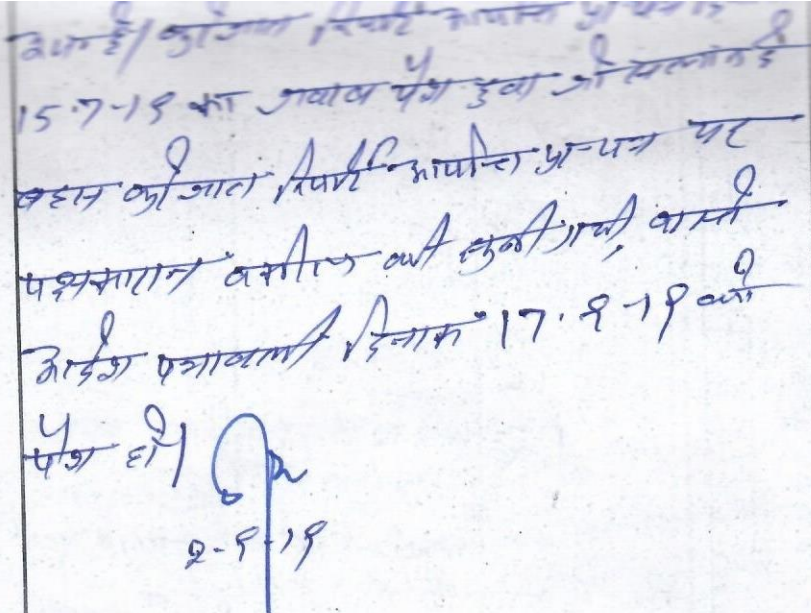 पेश है। कुर्रेजात रिपोर्ट आपत्ति प्रा-पत्र
15-7-19 का जवाब पेश हुवा जो सा०मि० है
बहस कुर्रेजात रिपोर्ट आपत्ति प्रा-पत्र पर
पक्षकारान वकील की सुनी गयी, वास्ते
आदेश पत्रावली दिनांक 17.9-19 को
पेश हो।
2-9-19